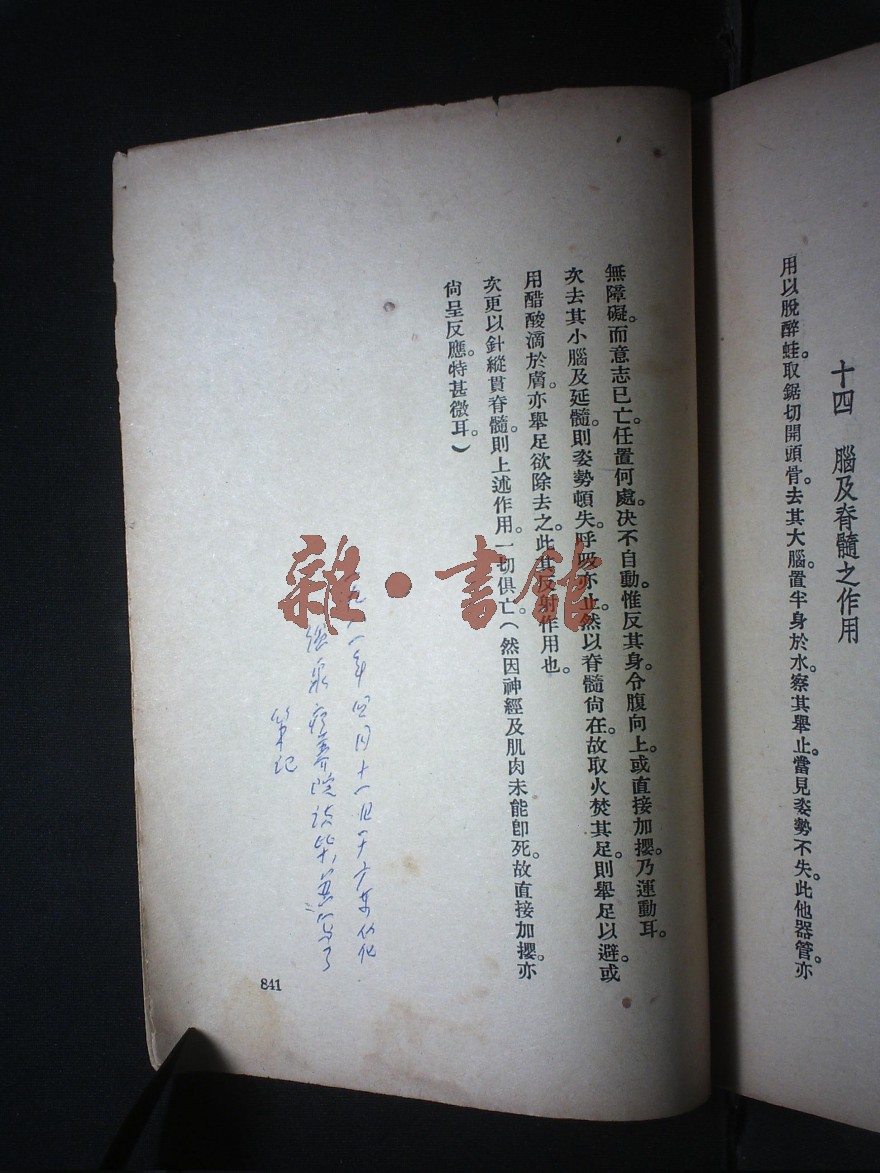 十四　腦及脊髓之作用
用以脫醉蛙。取鋸切開頭骨。去其大腦。置半身於水。察其舉止。當見姿勢不失。此他器管。亦
無障礙。而意志已亡。任置何處。决不自動。惟反其身。令腹向上。或直接加攖。乃運動耳。
次去其小腦及延髓。則姿勢頓失。呼吸亦止。然以脊髓尙在。故取火焚其足。則舉足以避。或
用醋酸滴於膚。亦舉足欲除去之。此其反射作用也。
次更以針縱貫脊髓。則上述作用。一切俱亡（然因神經及肌肉未能卽死。故直接加攖。亦
尙呈反應。特甚微耳。）
一年四月十一日于
溫泉療養院讀畢
筆記
841
雜·書館